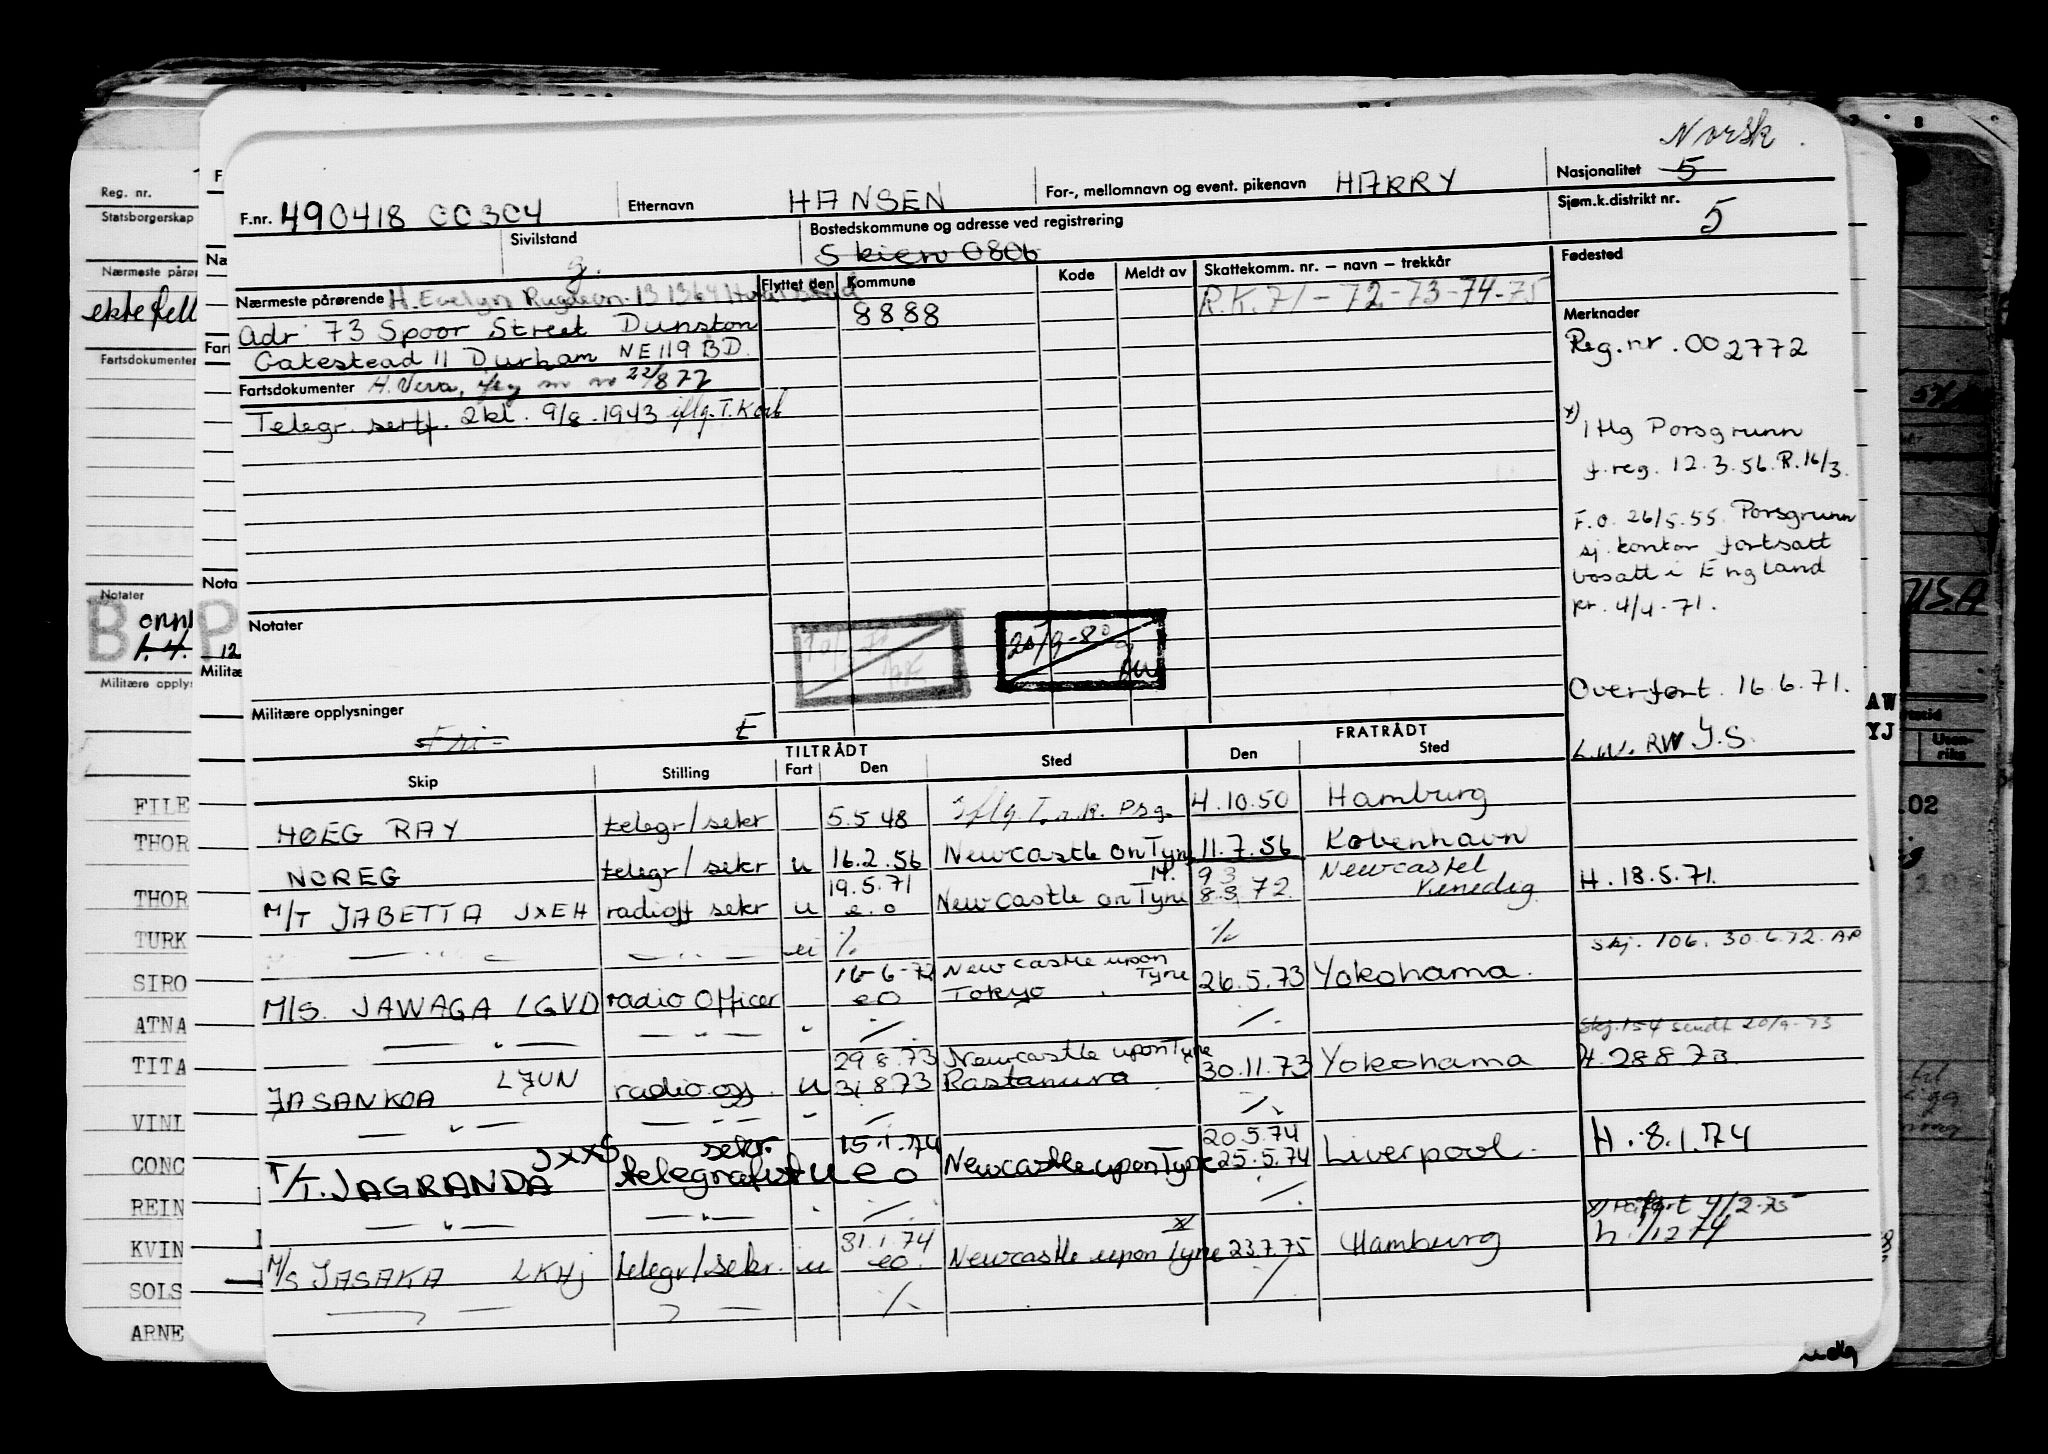 Norsk.
F.nr. 490418 00304 Etternavn HANSEN For-, mellomnavn og event. pikenavn HARRY Nasjonalitet 5
Sivilstand g. Bostedskommune og adresse ved registrering Skien 0806 Sjøm.k.distrikt nr. 5
Nærmeste pårørende H. Evelyn Flyttet den Kommune Kode Meldt av Skattekomm. nr. – navn – trekkår Fødested
Adr: 73 Spoor Street Dunston 8888 R.K. 71 - 72 - 73 - 74 - 75
Gatestead 11 Durham NE 119 BD.
Fartsdokumenter H. Vera, 22/8 77
Telegr. sertf. 2kl. 9/8. 1943 iflg. T.
Merknader
Reg.nr. 002772
x)
1 Hg Porsgrunn
f.reg. 12.3.56. R. 16/3.
F.O. 26/5.55. Porsgrunn
sj. kontor fortsatt
bosatt i England
pr. 4/4-71.
Overført. 16.6.71.
L.W. RW J.S.
Notater
20/9-80
Militære opplysninger
Fri- E
TILTRÅDT FRATRÅDT
Skip Stilling Fart Den Sted Den Sted
HØEG RAY telegr/sekr 5.5 48 iflg. T.a.R. Psg. 4.10.50 Hamburg
NOREG telegr/sekr u 16.2.56 Newcastle on Tyne 11.7.56 København
M/T JABETTA JXEH radioff sekr u 19.5.71 e.o Newcastle on Tyne 14. 9 3 8.3.72. Newcastel Venedig H. 18.5.71.
— " — — " — u ·/. ·/. Skj. 106. 30.6.72. AP
M/S. JAWAGA LGVD radio Officer 16-6-72 eo Newcastle upon Tyne Tokyo 26.5.73 Yokohama.
— " — — " — " ·/. ·/. Skj. 154 sendt 20/9-73
JASANKOA LJUN radio.off. u 29.8.73 31.8.73 Newcastle upon Tyne Rastanura 30.11.73 Yokohama H. 28.8.73
— " — — " — " ·/. ·/.
T/T. JAGRANDA JXXS sekr. telegrafist u 15.1.74 eo Newcastle upon Tyne 20.5.74 25.5.74 Liverpool. H. 8.1.74
— " — — " — " ·/. ·/. x) Påført 4/2-75
M/S JASAKA LKHJ telegr/sekr. u 31.1.74 eo. Newcastle upon Tyne x/ 23.7.75 Hamburg h. 1/12 74
— " — — " — ·/. ·/.
Reg. nr.
Statsborgerskap
Nærmeste pårør
ektefell
Fartsdokumenter
Notater
B
Militære opplys
FILE
THOR
THOR
TURK
SIRO
ATNA
TITA
VINI
CONC
REIN
KVIN
SOLS
ARNE
F
Na
Fart
Nota
P
12
Militæ
USA
AW
YJ
Uten-
riks
.02